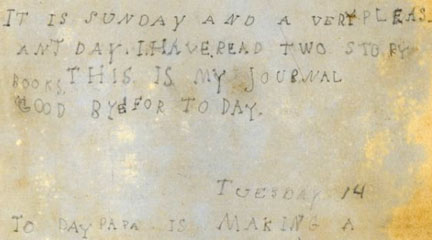 IT IS SUNDAY AND A VERY PLEAS
ANT DAY. I HAVE READ TWO STORY
BOOKS. THIS IS MY JOURNAL
GOOD BYE FOR TO DAY.
TUESDAY 14
TO DAY PAPA IS MAKING A